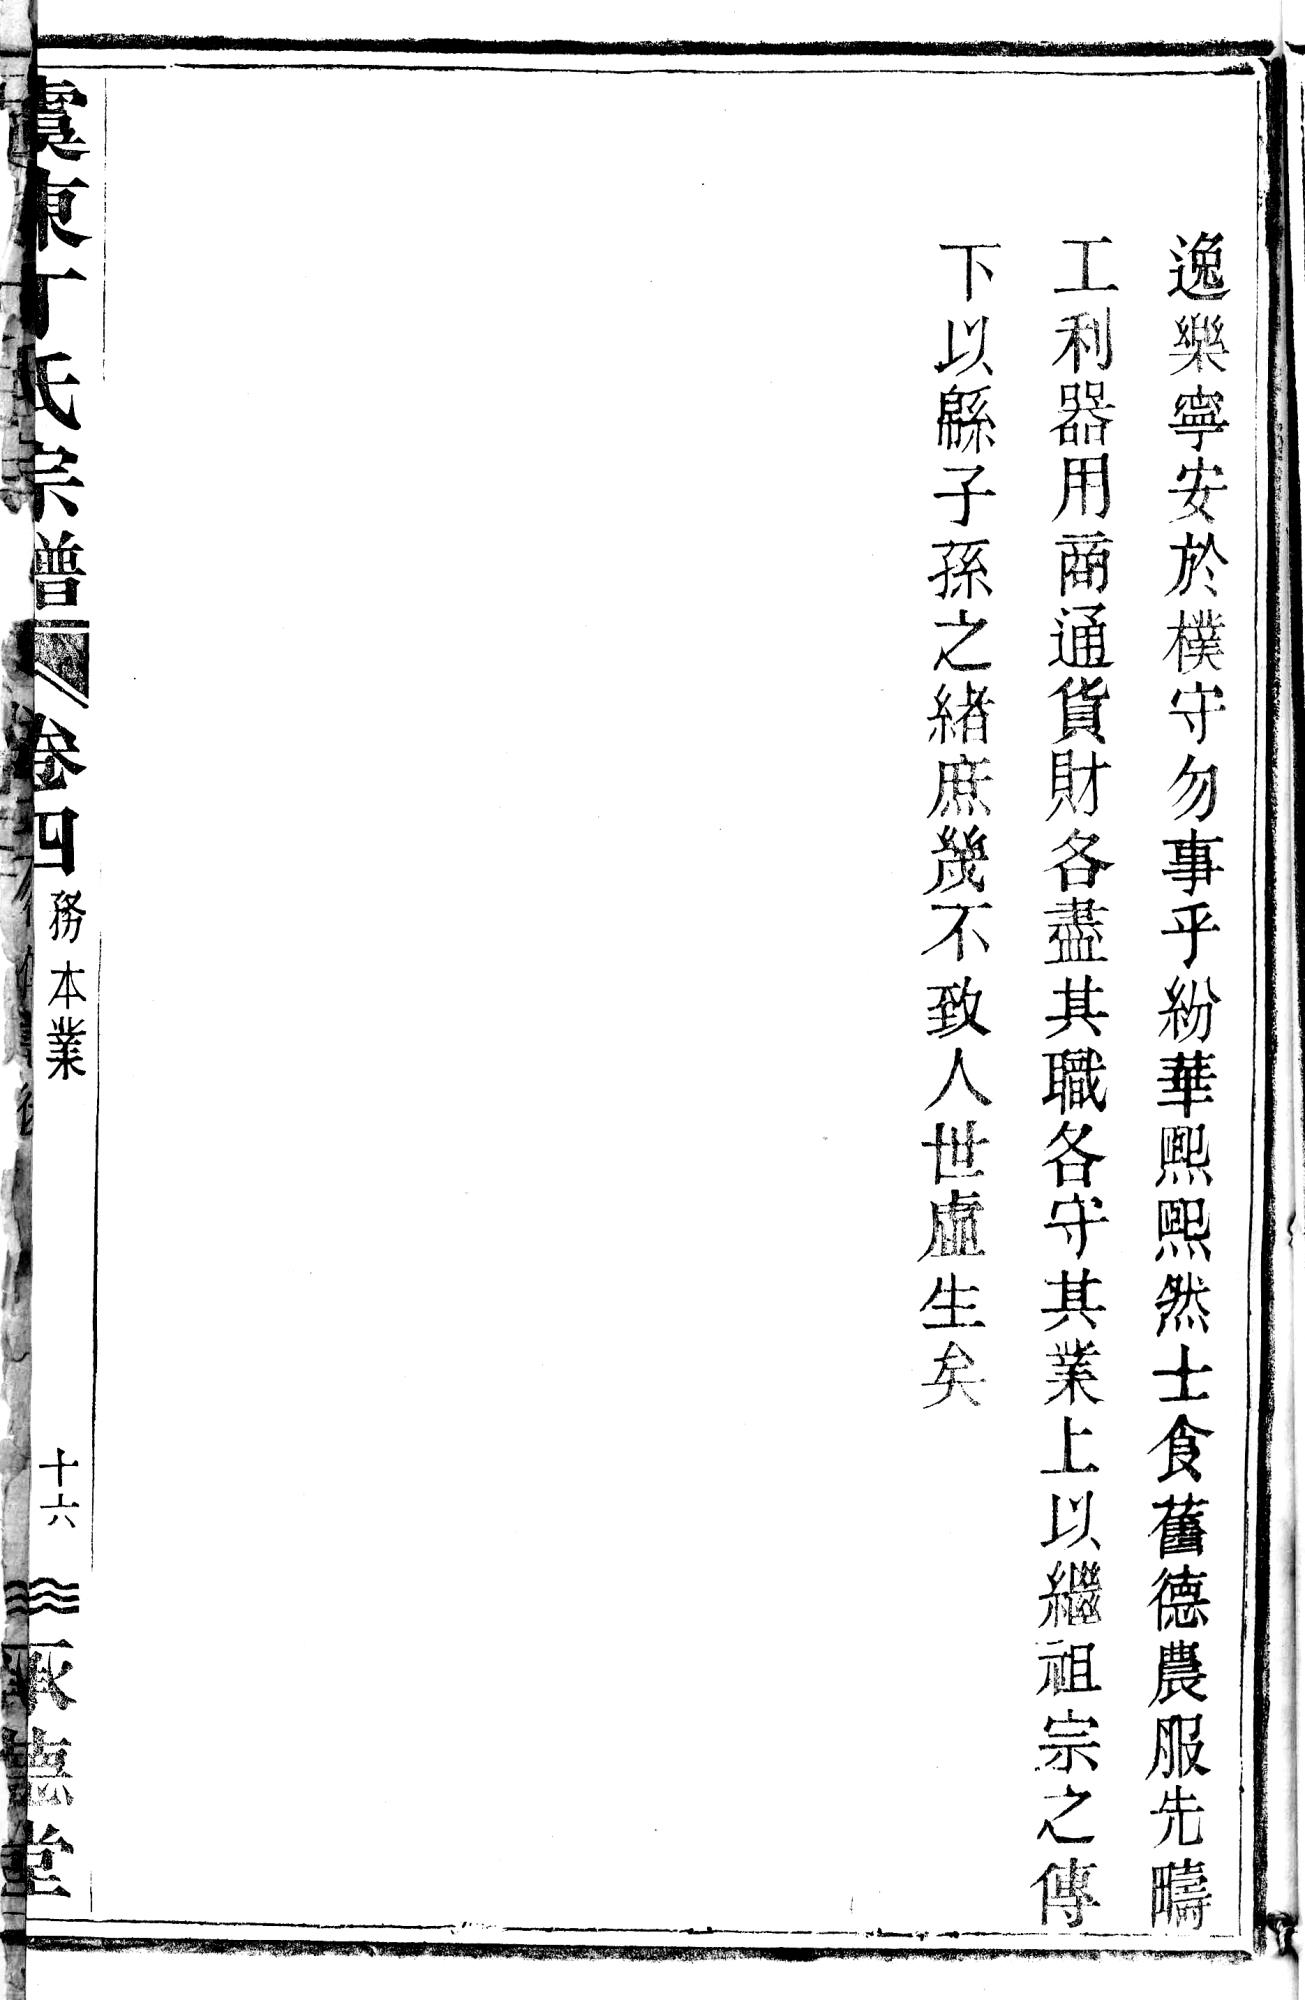 逸樂寧安於樸守勿事乎紛華熙熙然士食舊德農服先疇
工利器用商通貨財各盡其職各守其業上以繼祖宗之傳
下以緜子孫之緒庶幾不致人世虛生矣
虞東丁氏宗譜 卷四 務本業 十六 承德堂